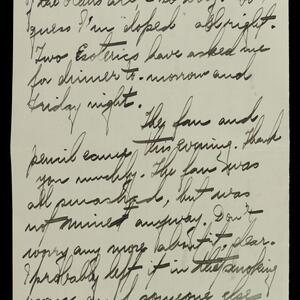 guess I'm "doped" all right.
Two Esoterics have asked me
for dinner to-morrow and
Friday night.
The fan and
pencil came this evening. Thank
you muchly. The fan was
all smashed, but was
not mine anyway. Don't
worry any more about it, dear.
I probably left it in the smoking
room and someone else